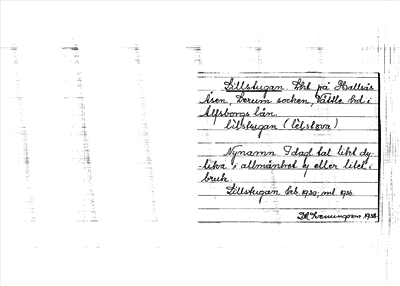 Lillstugan. Lht på Hallsås
Åsen, Lerum socken, Vättle hd i
Älfsborgs län.
lilstugan (lelstôva)
Nynamn. I dagl. tal likt dy-
lika i allmänhet ej eller litet i
bruk.
Lillstugan hrb. 1930; ml. 1936.
1938